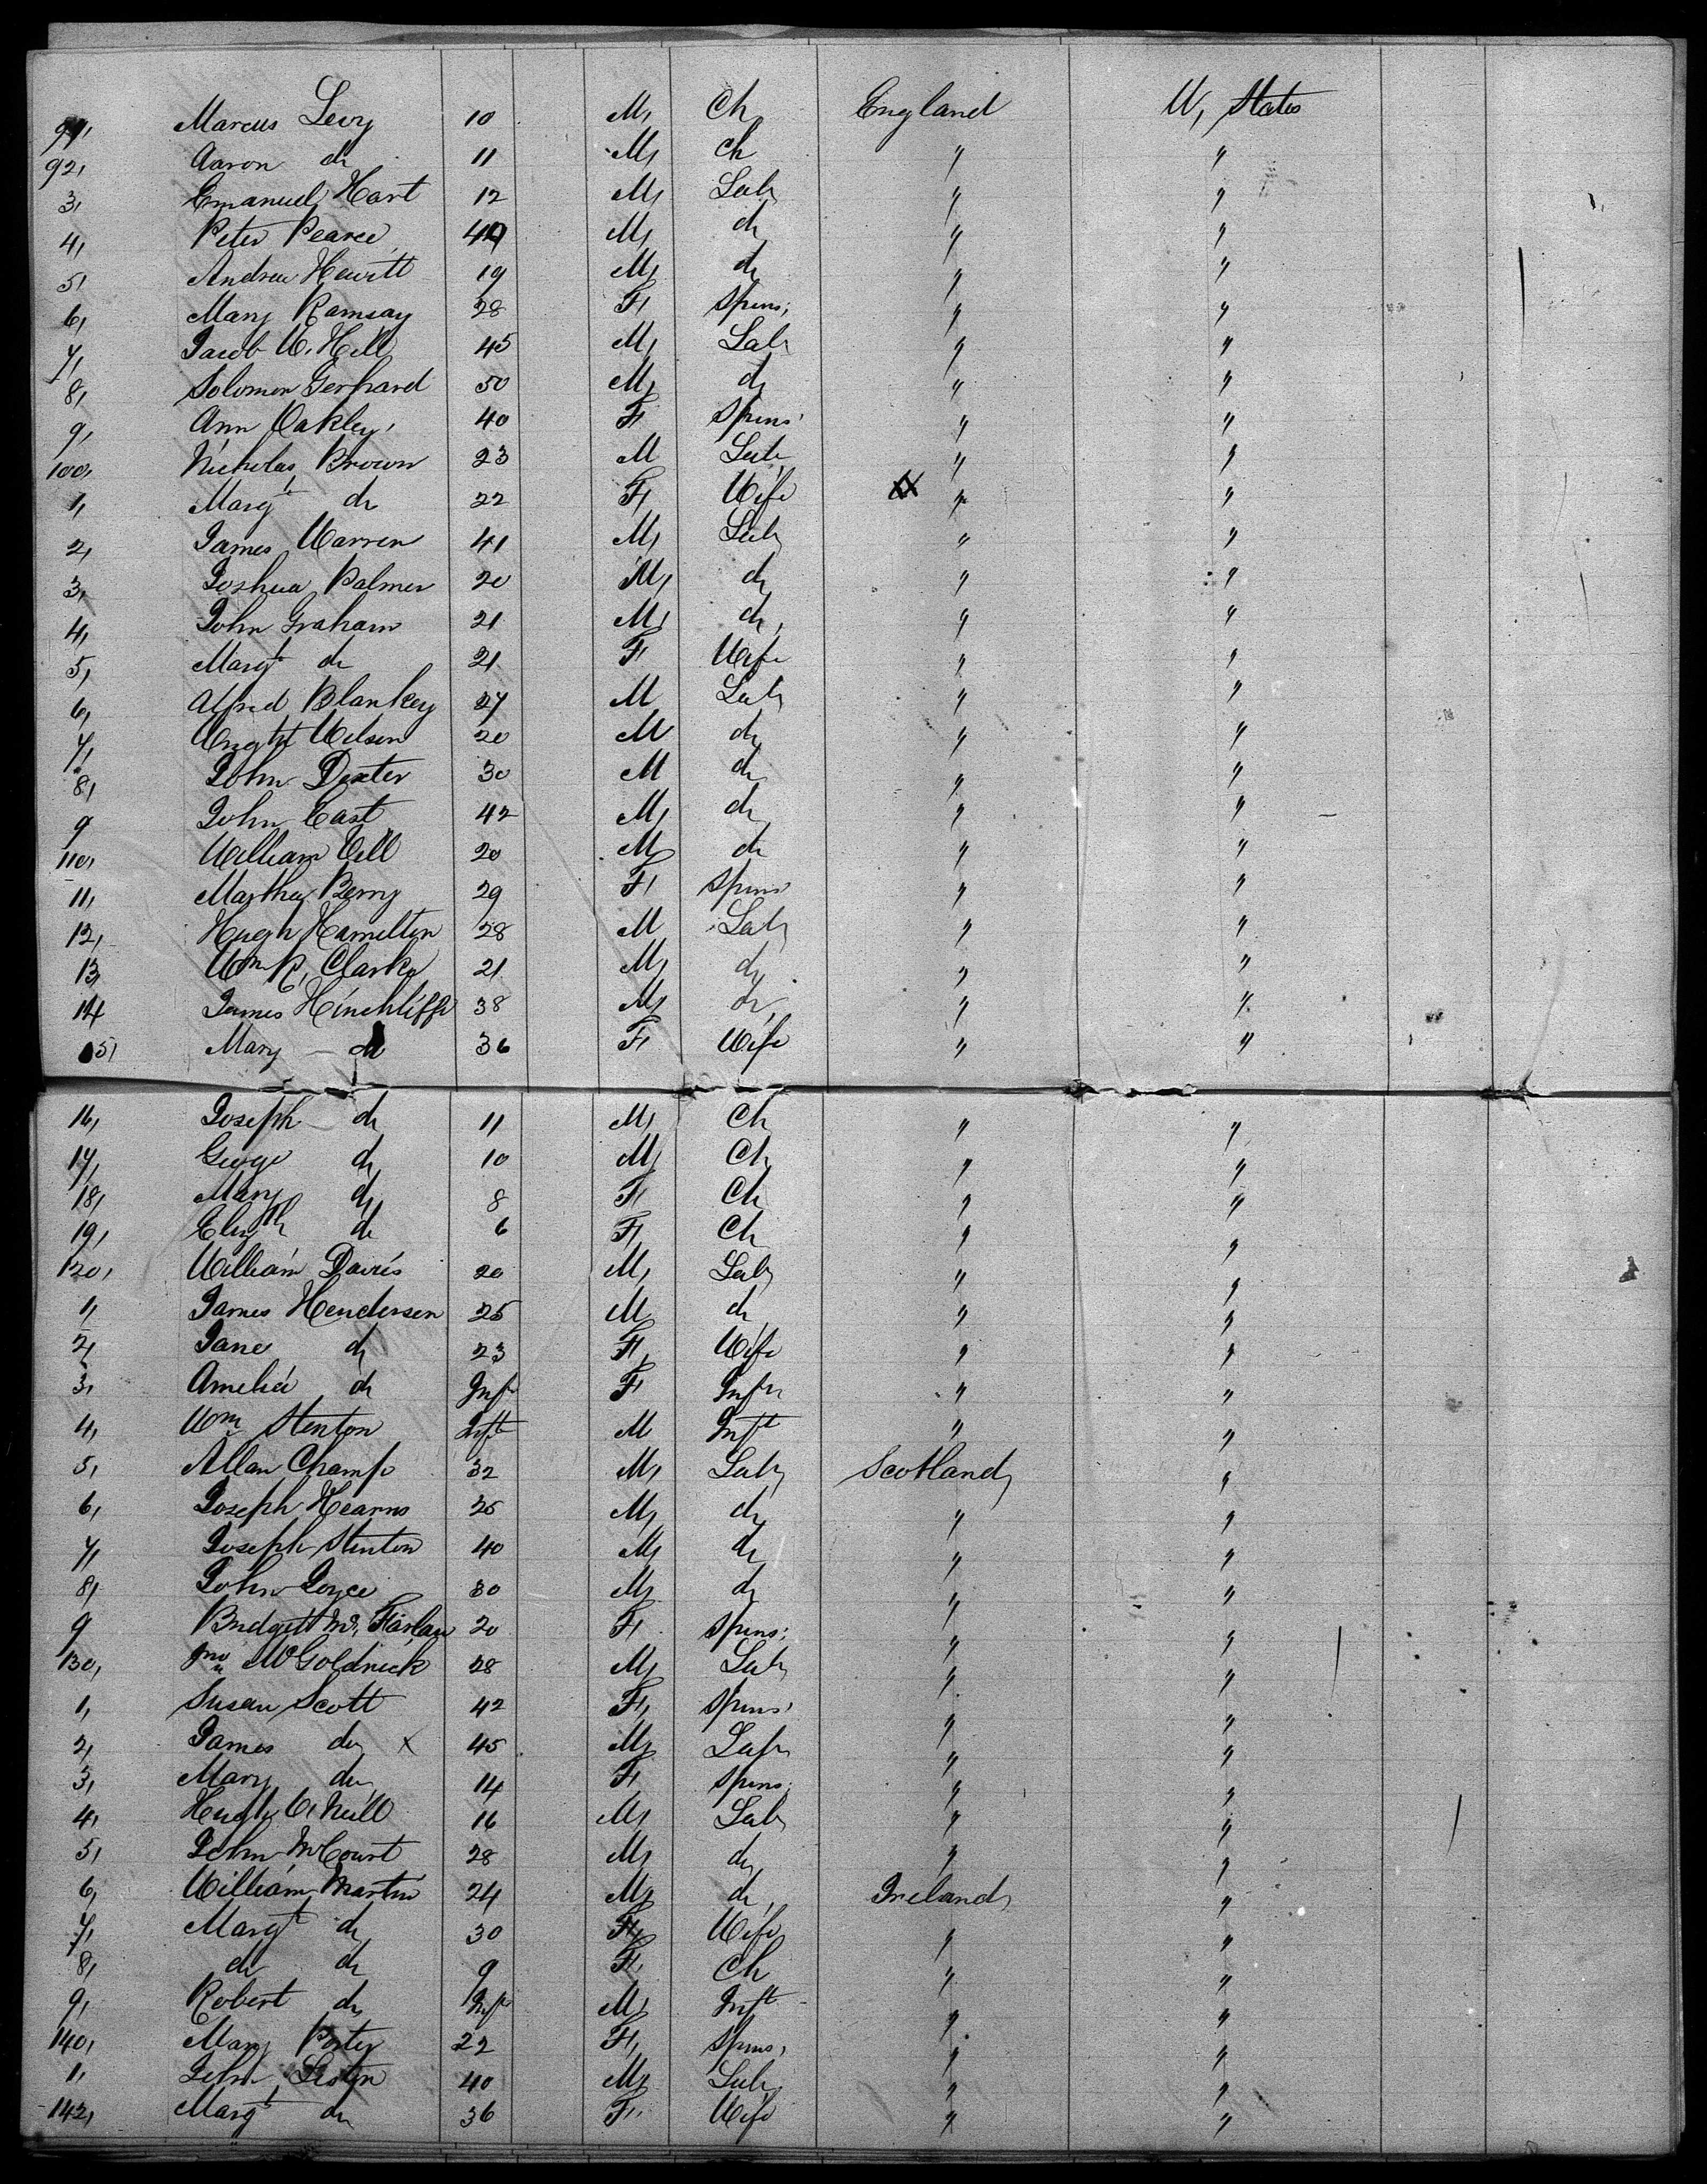 91, Marcus Levy 10 M, Ch England U, States
92, Aaron do 11 M, Ch " "
3, Emanuel Hart 12 M, Lab " "
4, Peter Pearce M, do " "
5, Andrew Hewitt 19 M, do " "
6, Mary Ramsay 28 F, Spins; " "
7, Jacob W. Hill 45 M, Lab " "
8, Solomon Gerhard 50 M, do " "
9, Ann Oakley 40 F, Spins " "
100, Nicholas Brown 23 M Lab " "
1, Margt do 22 F, Wife " "
2, James Warren 41 M, Lab " "
3, Joshua Palmer 20 M, do " "
4, John Graham 21 M, do, " "
5, Margt do 21 F Wife " "
6, Alfred Blankey 27 M Lab " "
7, Wright Wilson 20 M do " "
8, John Dexter 30 M do " "
9 John East 42 M, do " "
110, William 20 M, do " "
11, Martha Berry 29 F, Spins " "
12, Hugh Hamilton 28 M Lab " "
13, Wm R, Clarke 21 M, do " "
14 James Hinchliffe 38 M, do, " "
15, Mary do 36 F, Wife " "
16, Joseph do 11 M, Ch " "
17, George do 10 M, Ch " "
18, Mary do 8 F, Ch " "
19, Elizth do 6 F, Ch " "
120, William Davis 20 M, Lab " "
1, James Henderson 25 M, do " "
2, Jane do 23 F, Wife " "
3, Amelia do Inft F, Inft " "
4, Wm Stenton Inft M Inft " "
5, Allan Champ 32 M, Lab Scotland "
6, Joseph Hearns 25 M, do " "
7, Joseph Stenton 40 M, do " "
8, John Joyce 30 M, do " "
9 Bridgett Mc Farlan 20 F, Spins; " "
130, Jno McGoldrick 28 M, Lab " "
1, Susan Scott 42 F, Spins " "
2, James do x 45 M, Lab " "
3, Mary do 14 F, Spins; " "
4, Hugh O'Neill 16 M, Lab " "
5, John McCourt 28 M, do " "
6, William Martin 24 M, do Ireland "
7, Margt do 30 F, Wife " "
8, do do 9 F, Ch " "
9, Robert do Inft M, Inft " "
140, Mary Porter 22 F, Spins, " "
1, John 40 M, Lab " "
142, Margt do 36 F, Wife " "